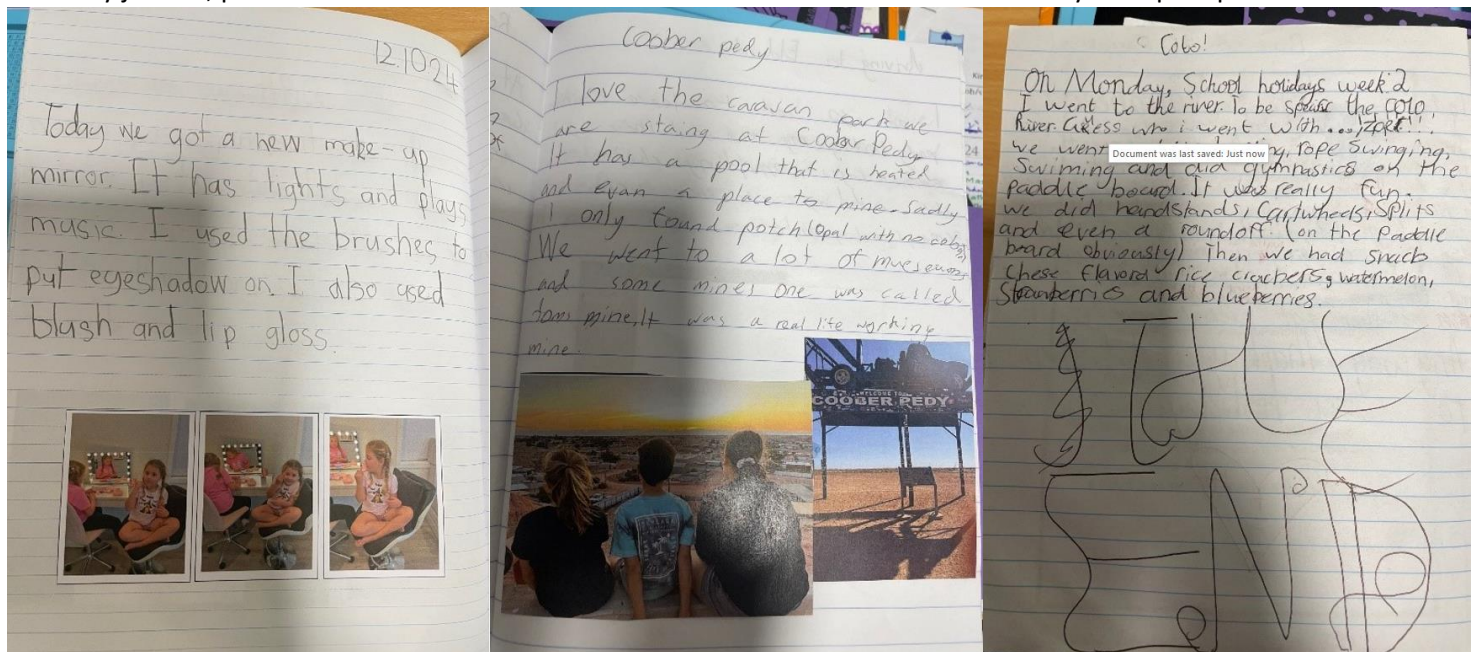 12.10.24
Today we got a new make-up
mirror. It has lights and plays
music. I used the brushes to
put eyeshadow on. I also used
blush and lip gloss.
Coober pedy
I love the caravan park we
are staing at Coober Pedy.
It has a pool that is heated
and evan a place to mine. Sadly
I only found potch (opal with no
We went to a lot of
and some mines one was called
toms mine. It was a real life working
mine.
WELCOME TO
COOBER PEDY
Colo!
On Monday, School holidays week 2
I went to the river. To be the colo
River. Guess who i went with...
we went rope Swinging,
Swiming and did gymnastics on the
paddle board. It was really fun.
we did handstands, Cartwheels, Splits
and even a roundoff. (on the Paddle
board obviously) Then we had snack
Chese flavord rice crackers, watermelon,
Strawberries and blueberries.
Document was last saved: Just now
THE
END